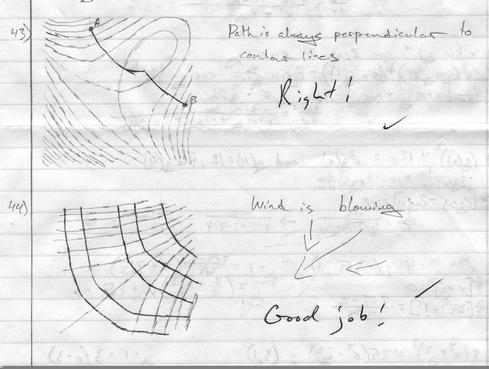 43)
A
B
Path is always perpendicular to
contour lines.
Right!
44)
Wind is blowing
Good job!